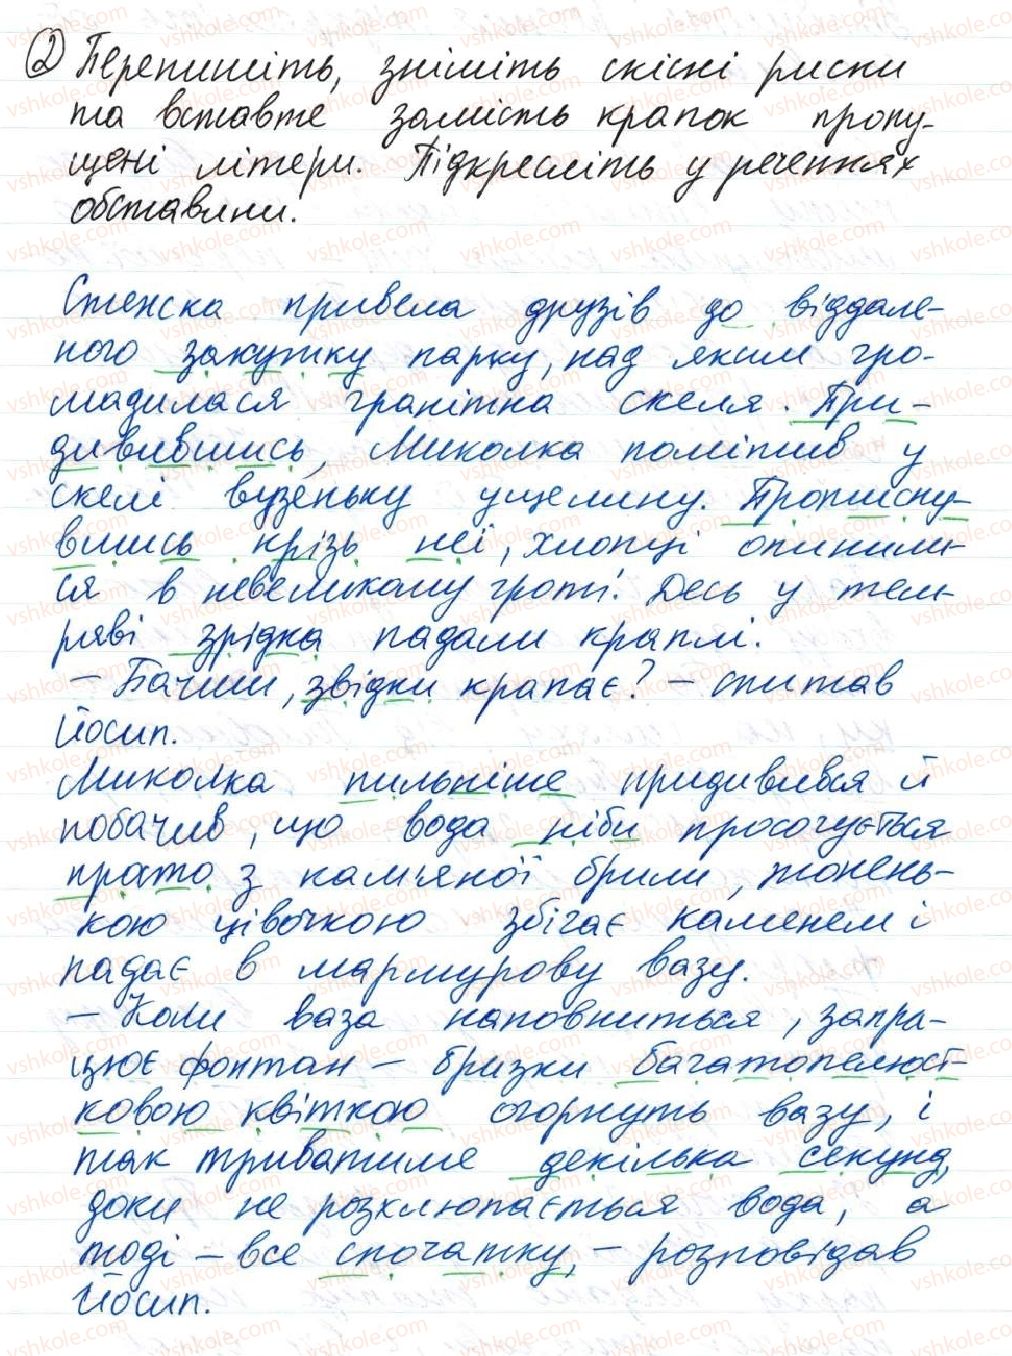 2 Перепишіть, зніміть скісні риски
та вставте замість крапок пропу-
щені літери. Підкресліть у реченнях
обставини.
Стежка привела друзів до віддале-
ного закутку парку, над яким гро-
мадилася гранітна скеля. При-
дивившись, Миколка помітив у
скелі вузеньку ущелину. Протисну-
вшись крізь неї, хлопці опинили-
ся в невеликому гроті. Десь у тем-
ряві зрідка падали краплі.
– Бачиш, звідки крапає? – спитав
Йосип.
Миколка пильніше придивився й
побачив, що вода ніби просочується
прямо з кам'яної брили, тонень-
кою цівочкою збігає каменем і
падає в мармурову вазу.
– Коли ваза наповниться, запра-
цює фонтан – бризки багатопелюст-
ковою квіткою огорнуть вазу, і
так триватиме декілька секунд,
доки не розхлюпається вода, а
тоді – все спочатку, – розповідав
Йосип.